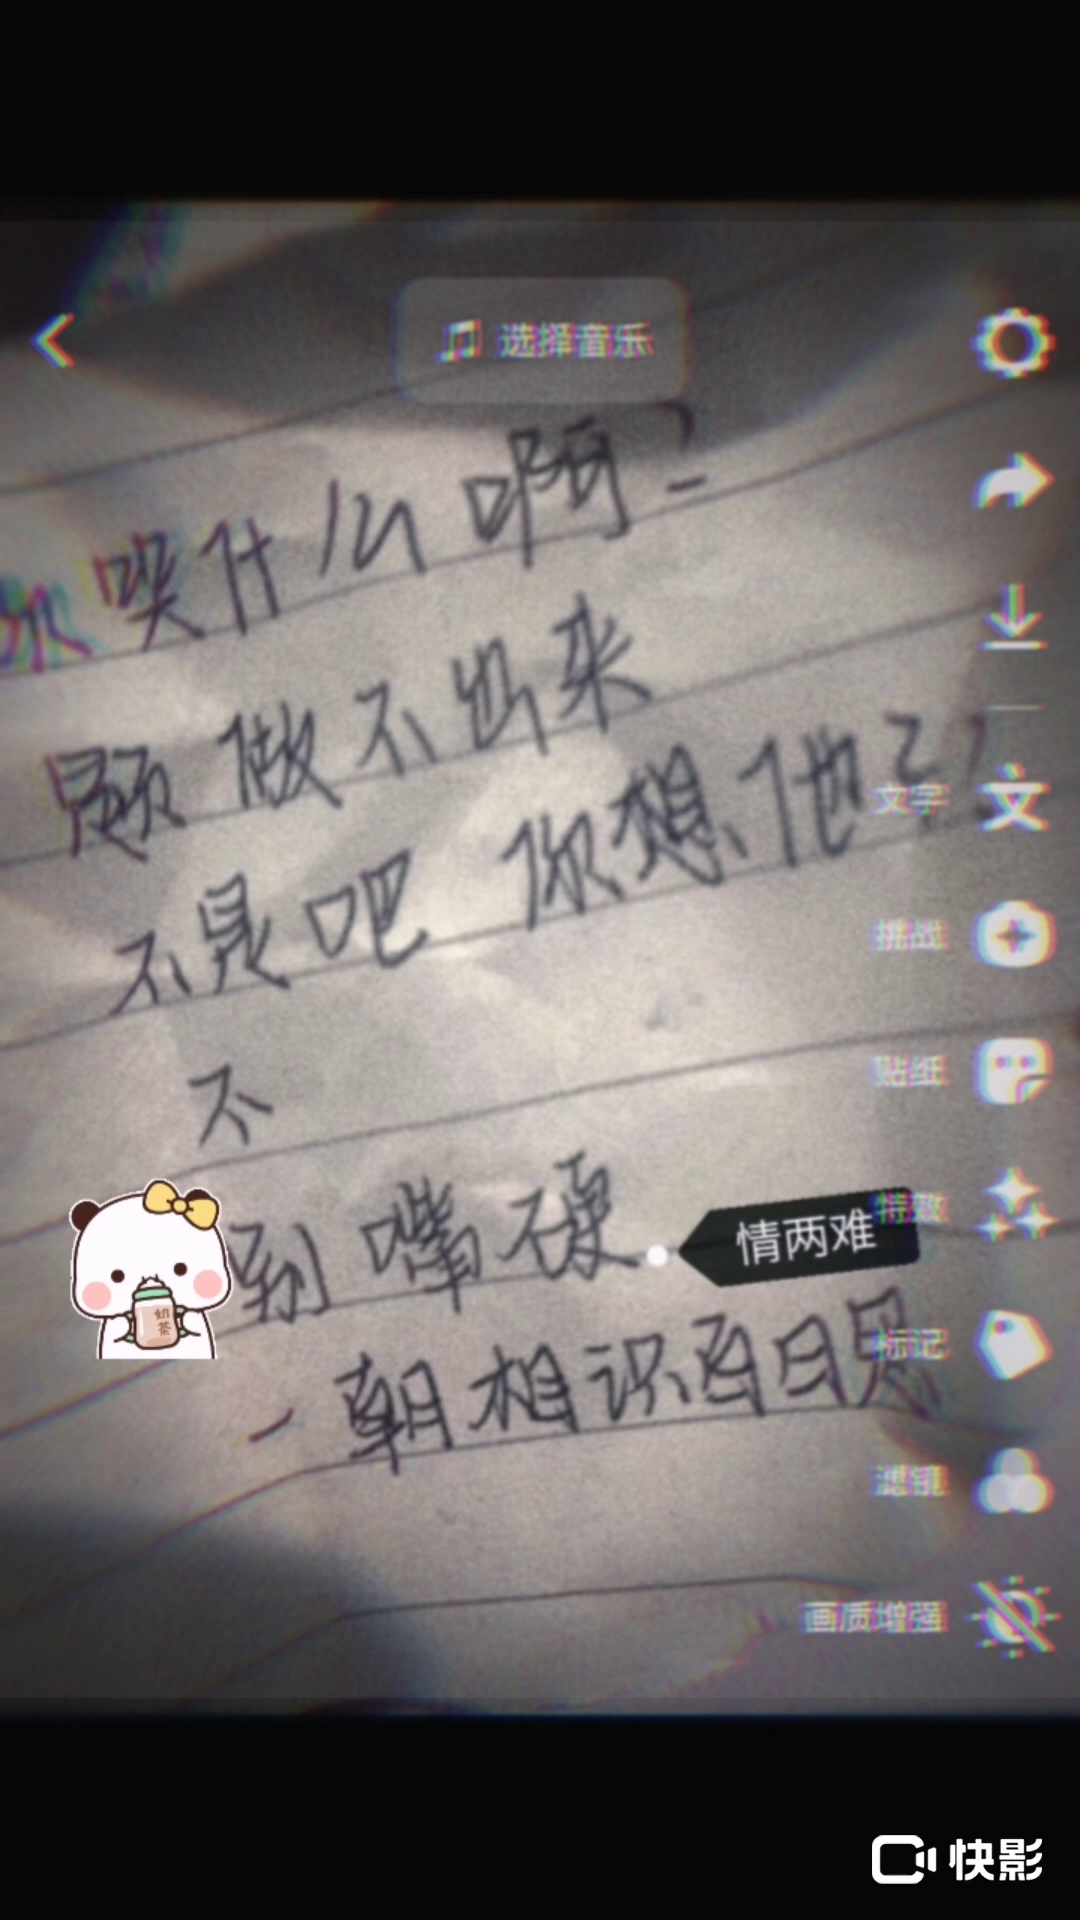 选择音乐
你哭什么啊?
题做不出来
不是吧 你想他了?
文字
挑战
不
贴纸
别嘴硬
情两难
特效
奶茶
一朝相识百日思
标记
滤镜
画质增强
快影